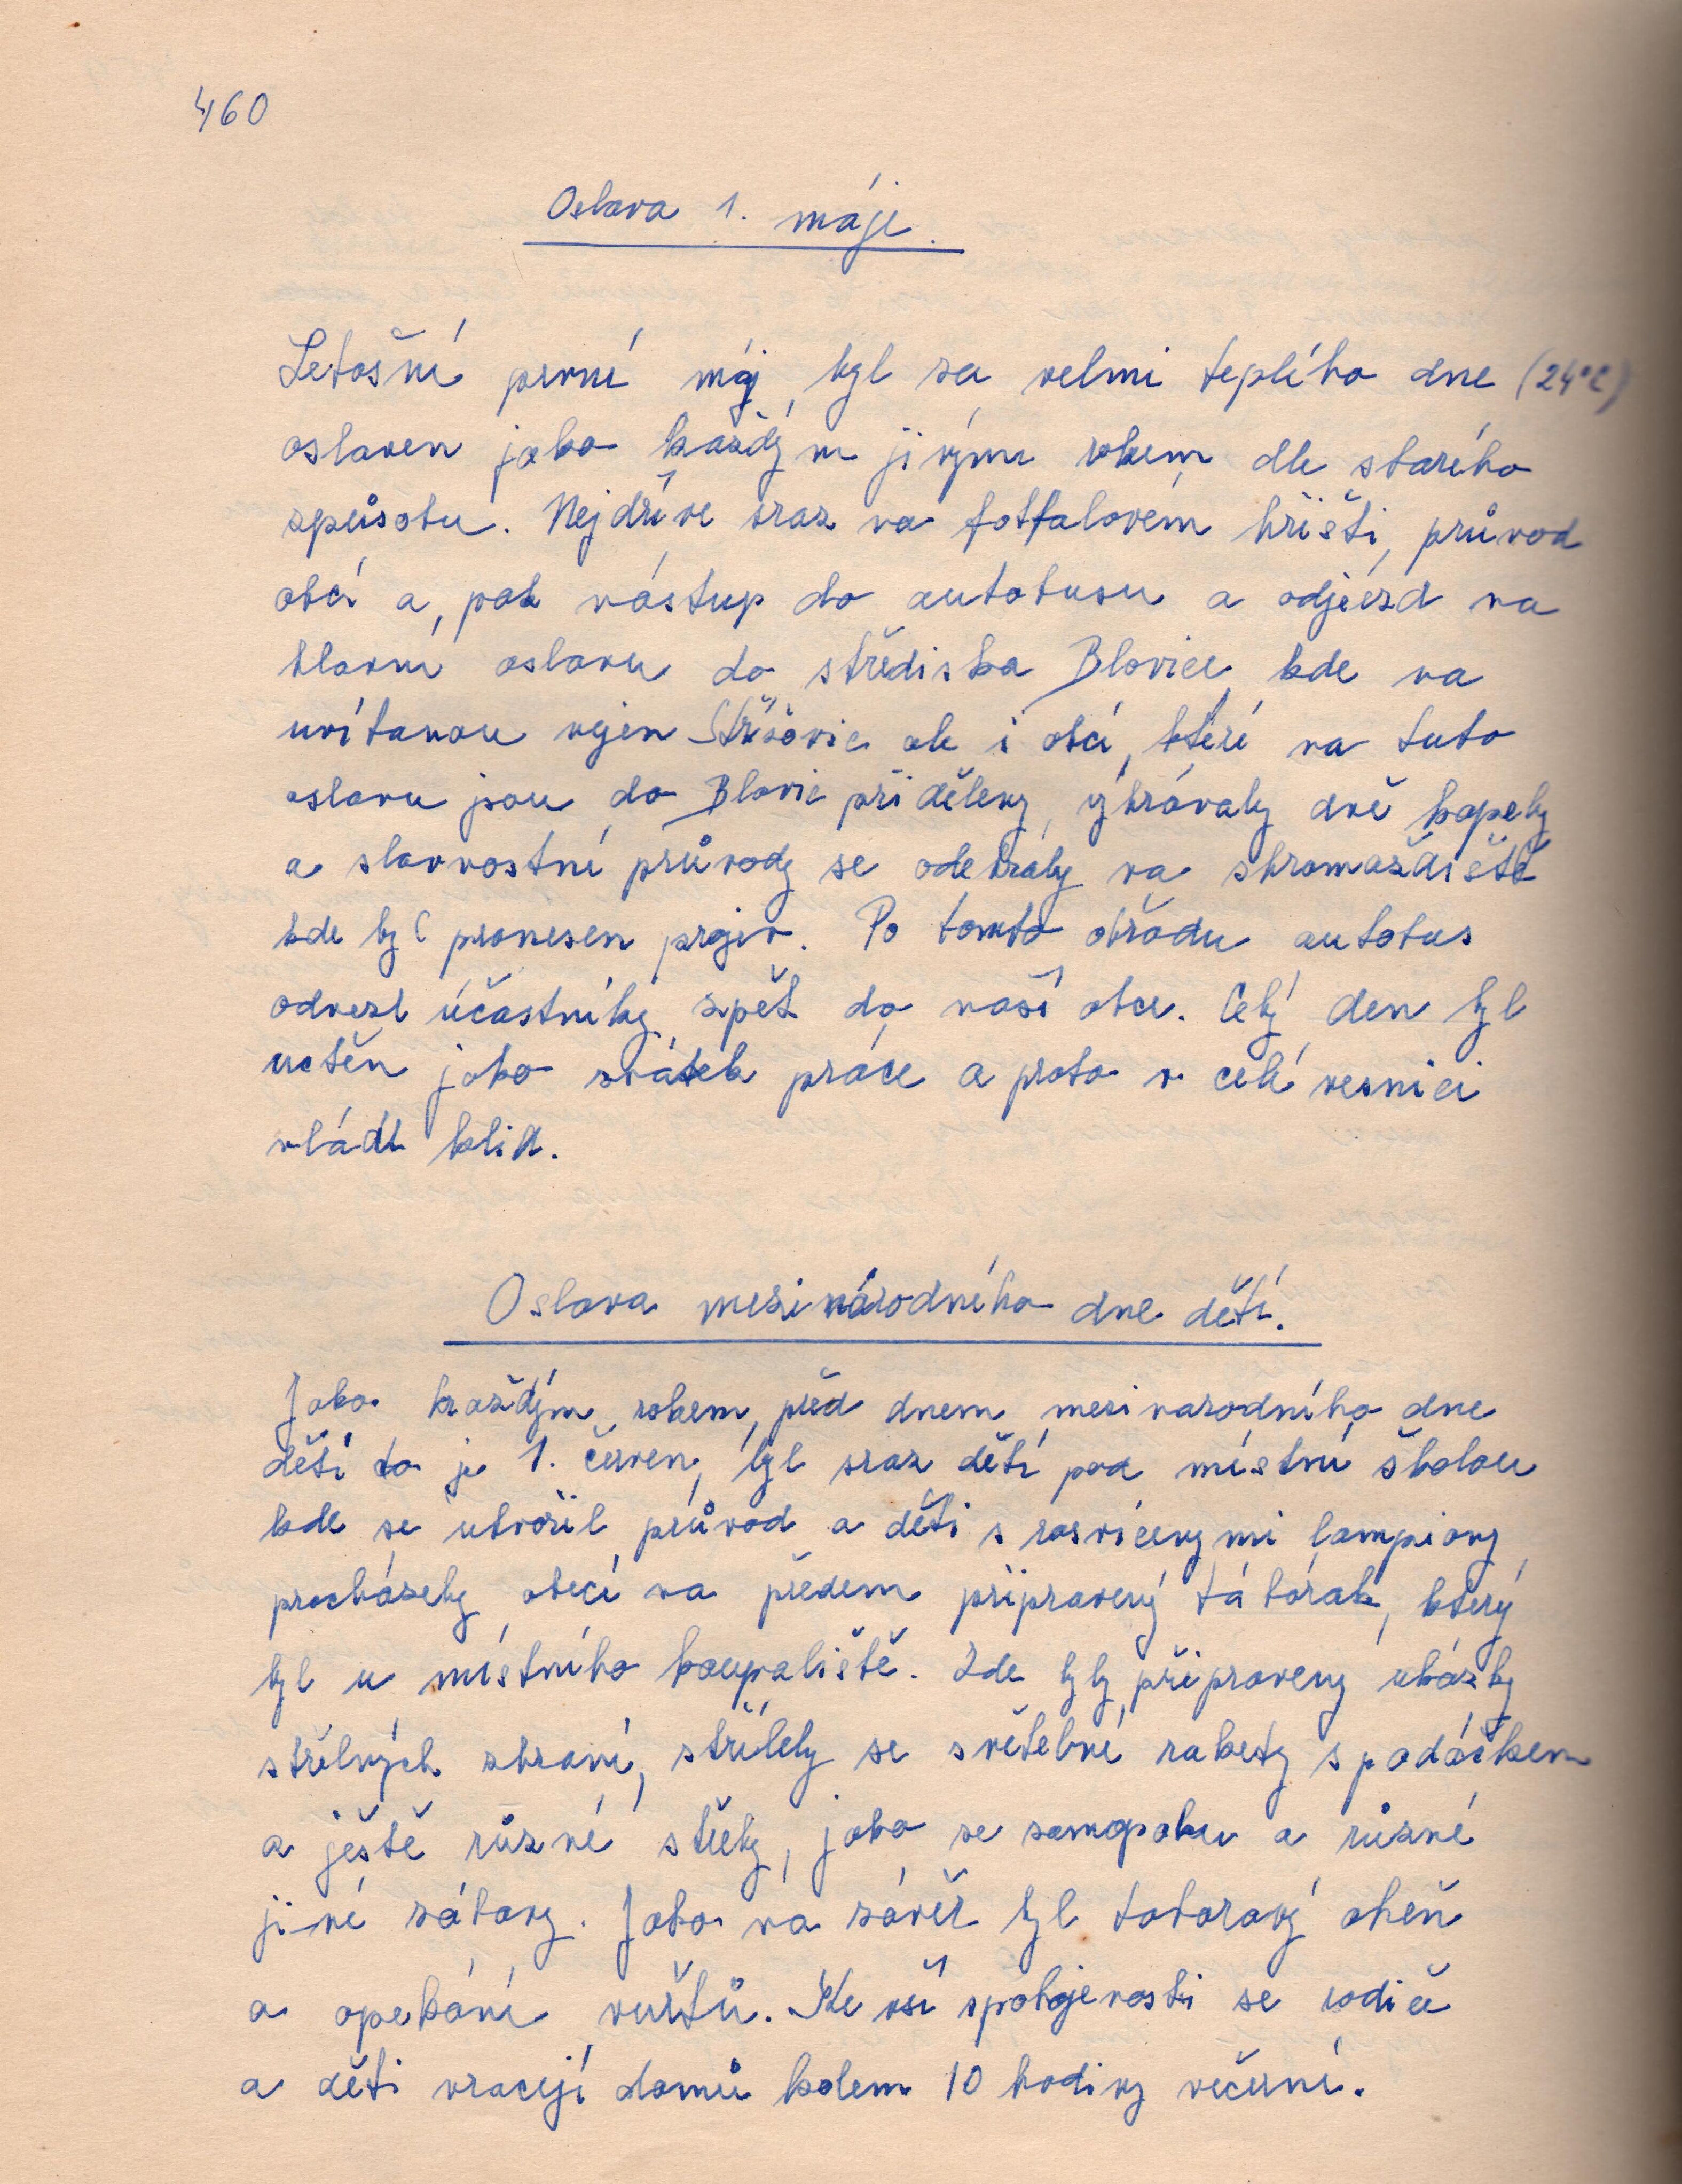 460
Oslava 1. máje.
Letošní první máj, byl za velmi teplého dne (24°C)
oslaven jako každým jiným rokem dle starého
způsobu. Nejdříve sraz na fotbalovém hřišti, průvod
obcí a, pak nástup do autobusu a odjezd na
hlavní oslavu do střediska Blovice, kde na
uvítanou nejen Střížovic ale i obcí, které na tuto
oslavu jsou do Blovic přiděleny, vyhrávaly dvě kapely
a slavnostní průvody se odebraly na shromaždiště
kde byl pronesen projev. Po tomto obřadu autobus
odvezl účastníky zpět do naší obce. Celý den byl
uctěn jako svátek práce a proto v celé vesnici
vládl klid.
Oslava mezinárodního dne dětí.
Jako každým rokem, před dnem mezinarodního dne
dětí to je 1. červen, byl sraz dětí pod místní školou
kde se utvořil průvod a děti s rosvícenými lampiony
procházely obcí na předem připravený táborák, který
byl u místního koupaliště. Zde byly připraveny ukázky
střelných zbraní, střílely se světelné rakety s padáčkem
a ještě různé střely, jako ze samopalu a různé
jiné zábavy. Jako na závěr byl táborový oheň
a opekání vuřtů. Ke vší spokojenosti se rodiče
a děti vracejí domů kolem 10 hodiny večerní.